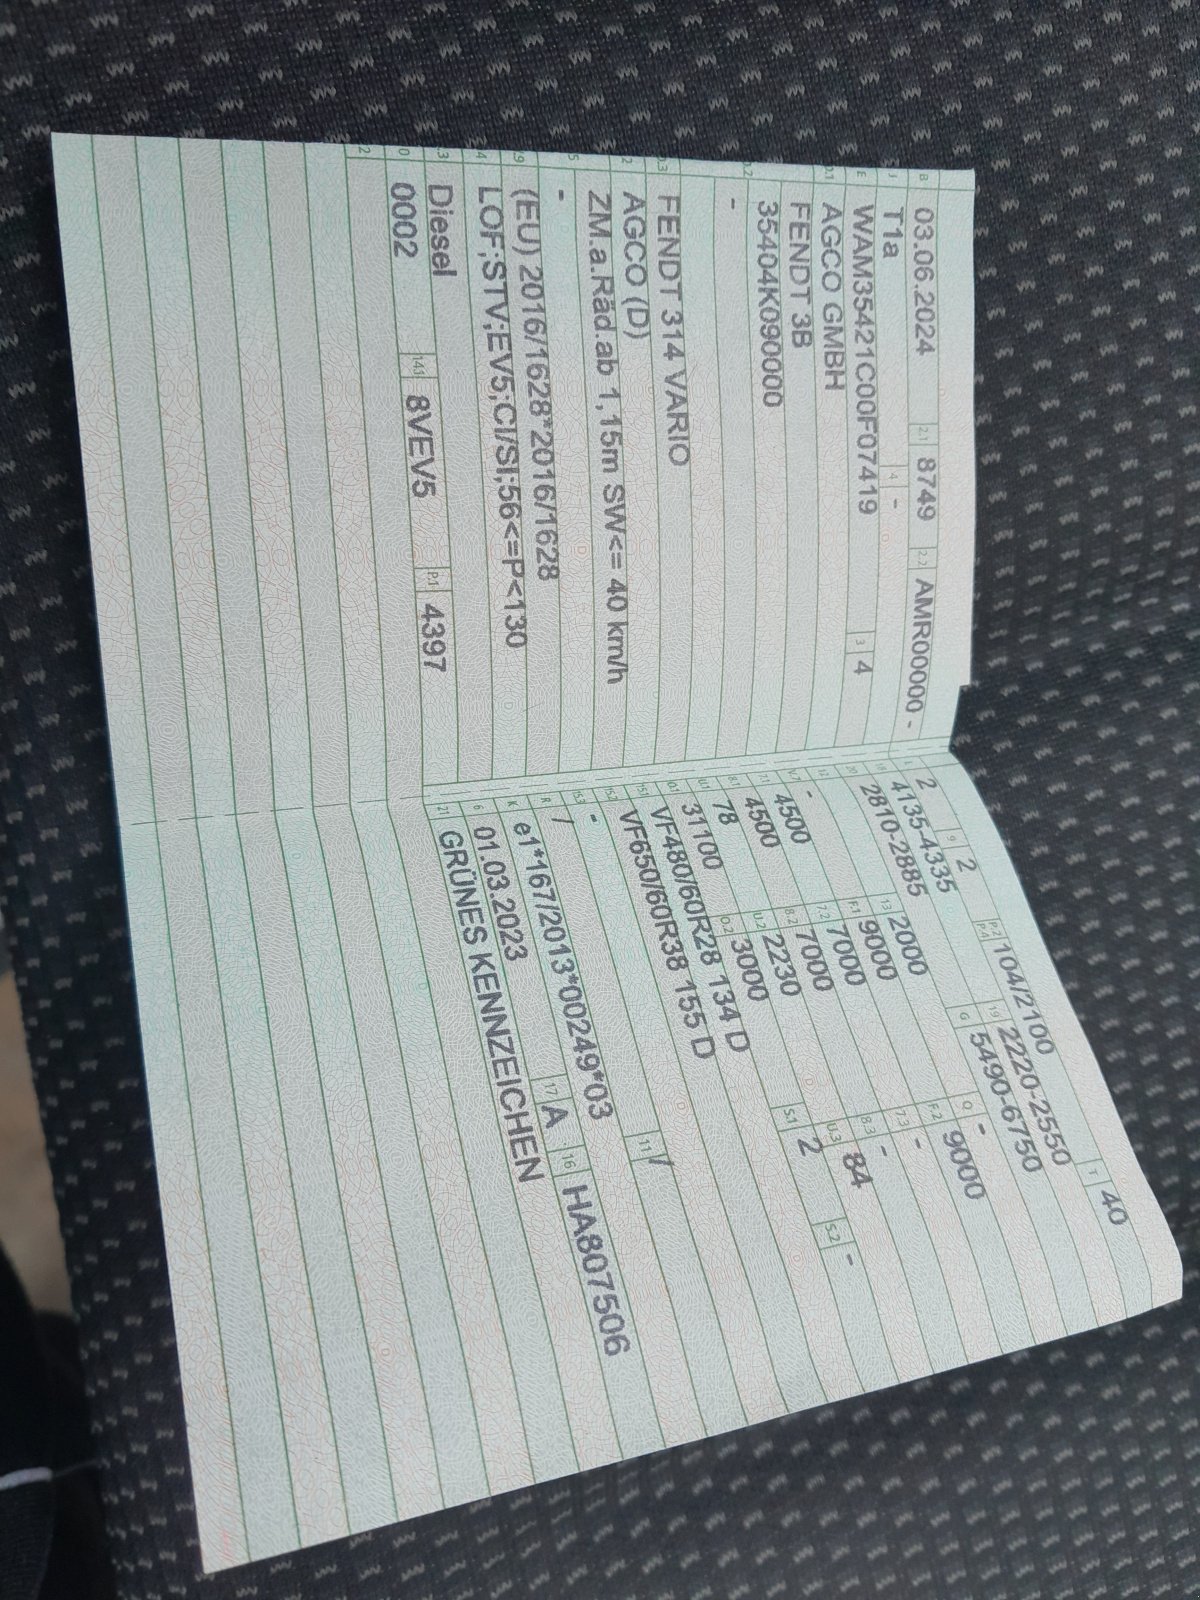 B 03.06.2024 2.1 8749 2.2 AMR00000 -
J T1a 4 - 3 4
E WAM35421C00F07419
D.1 AGCO GMBH
FENDT 3B
D.2 35404K090000
-
D.3 FENDT 314 VARIO
2 AGCO (D)
ZM.a.Räd.ab 1,15m SW<= 40 km/h
5 -
V.9 (EU) 2016/1628*2016/1628
14 LOF;STV;EV5;CI/SI;56<=P<130
P.3 Diesel
10 0002 14.1 8VEV5 P.1 4397
L 2 9 2 P.2 P.4 104/2100 T 40
18 4135-4335 19 2220-2550
20 2810-2885 G 5490-6750
12 - 13 2000 Q -
V.7 F.1 9000 F.2 9000
7.1 4500 7.2 7000 7.3 -
8.1 4500 8.2 7000 8.3 -
U.1 78 U.2 2230 U.3 84
O.1 31100 O.2 3000 S.1 2 S.2 -
15.1 VF480/60R28 134 D
15.2 VF650/60R38 155 D
15.3 -
R / 11 /
K e1*167/2013*00249*03
6 01.03.2023 17 A 16 HA807506
21 GRÜNES KENNZEICHEN